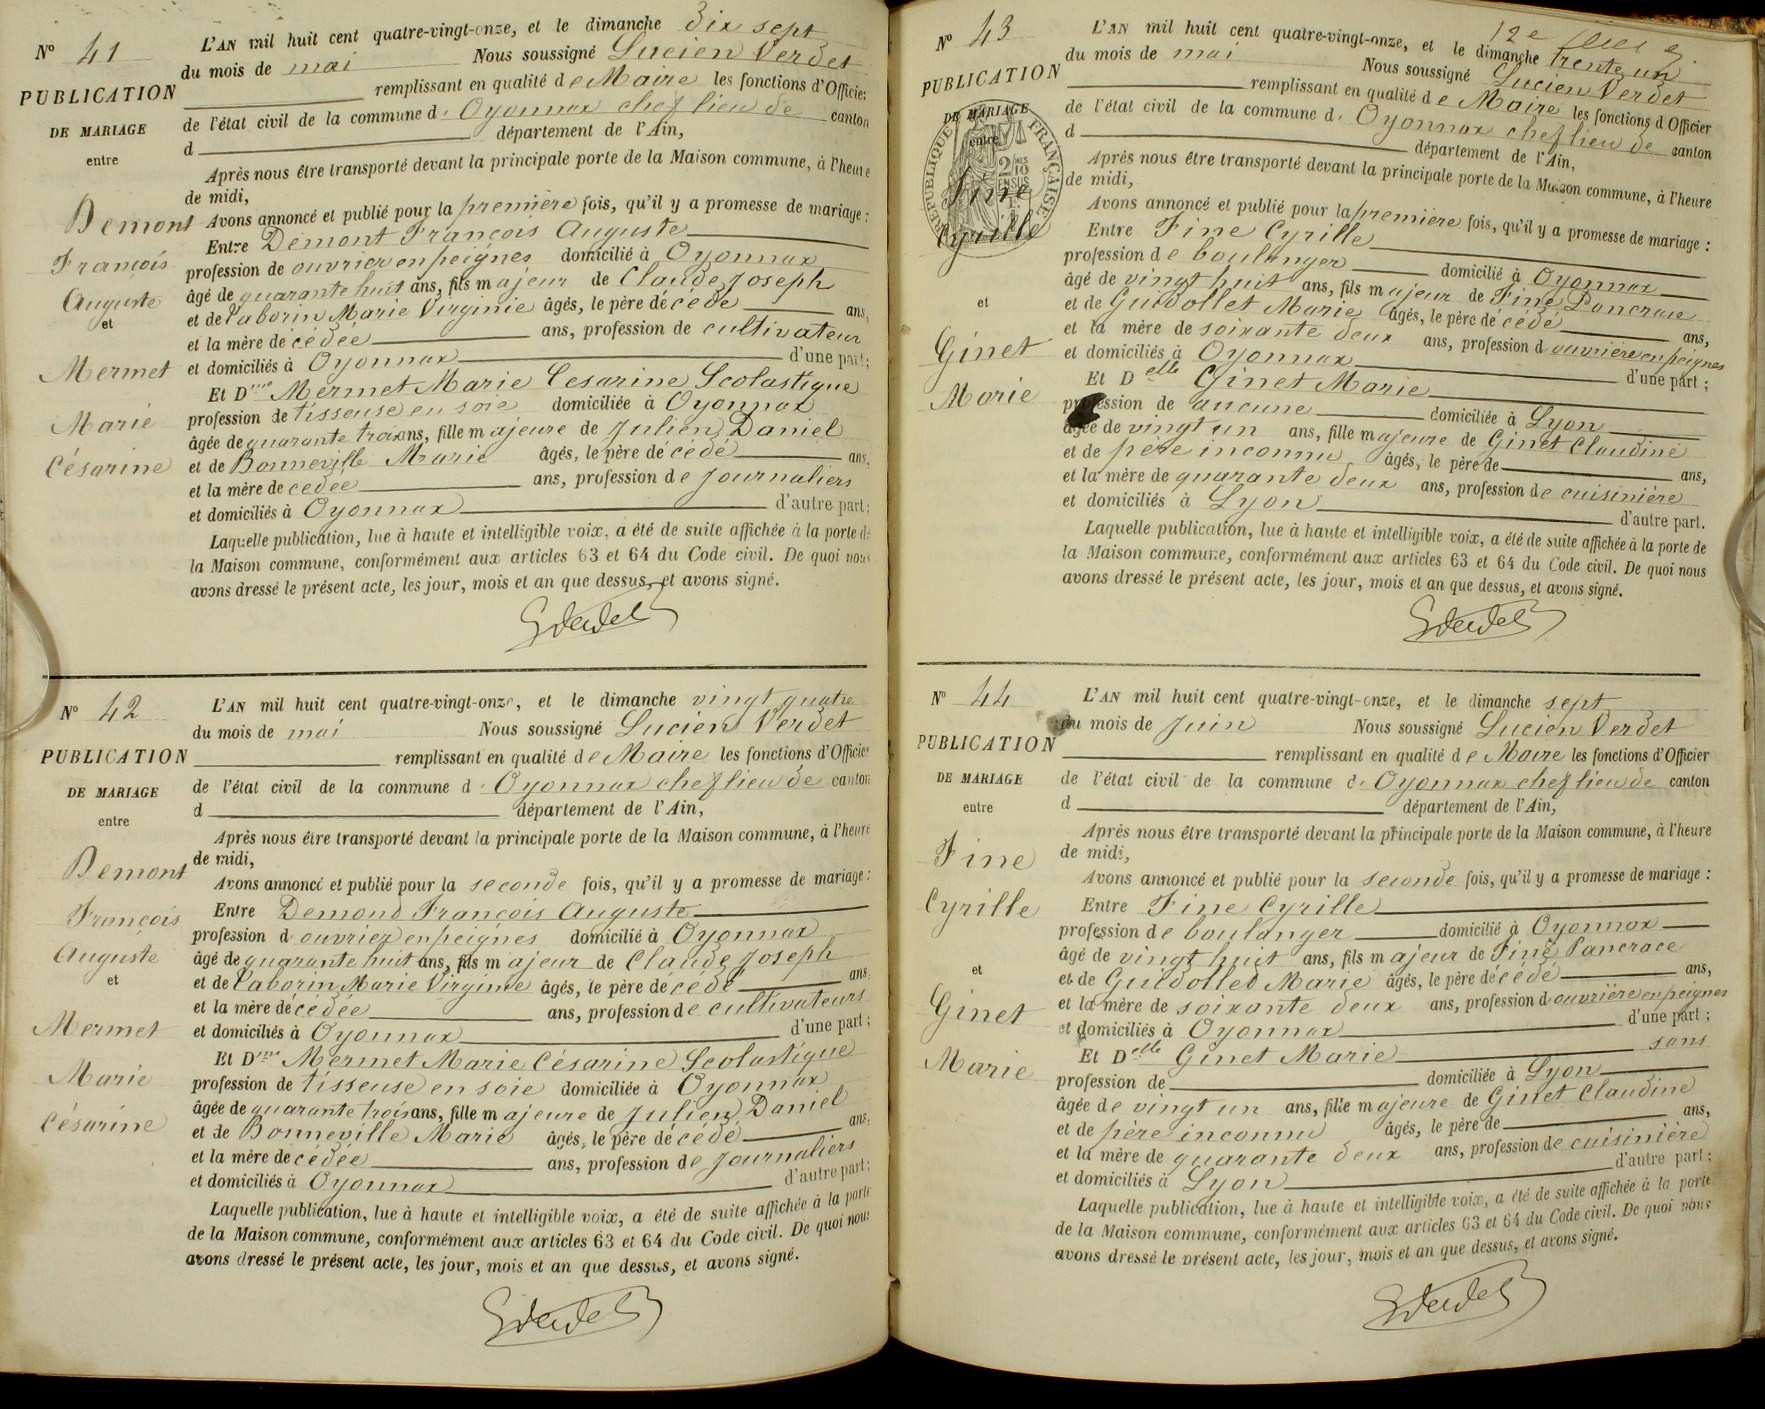 N° 41
PUBLICATION
DE MARIAGE
entre
Demont
François
Auguste
et
Mermet
Marie
Césarine
L'AN mil huit cent quatre-vingt-onze, et le dimanche dix sept
du mois de mai Nous soussigné Lucien Verdet
remplissant en qualité de Maire les fonctions d'Officier
de l'état civil de la commune d. Oyonnax chef lieu de canton
d département de l'Ain,
Après nous être transporté devant la principale porte de la Maison commune, à l'heure
de midi,
Avons annoncé et publié pour la première fois, qu'il y a promesse de mariage :
Entre Demont François Auguste
profession de ouvrier en peignes domicilié à Oyonnax
âgé de quarante huit ans, fils majeur de Claude Joseph
et de Paborin Marie Virginie âgés, le père décédé ans,
et la mère décédée ans, profession de cultivateur
et domiciliés à Oyonnax d'une part;
Et Dme Mermet Marie Cesarine Scolastique
profession de tisseuse en soie domiciliée à Oyonnax
âgée de quarante trois ans, fille majeure de Julien Daniel
et de Bonneville Marie âgés, le père décédé ans,
et la mère décédée ans, profession de journaliers
et domiciliés à Oyonnax d'autre part;
Laquelle publication, lue à haute et intelligible voix, a été de suite affichée à la porte de
la Maison commune, conformément aux articles 63 et 64 du Code civil. De quoi nous
avons dressé le présent acte, les jour, mois et an que dessus, et avons signé.
N° 42
PUBLICATION
DE MARIAGE
entre
Demont
François
Auguste
et
Mermet
Marie
Césarine
L'AN mil huit cent quatre-vingt-onze, et le dimanche vingt quatre
du mois de mai Nous soussigné Lucien Verdet
remplissant en qualité de Maire les fonctions d'Officier
de l'état civil de la commune d. Oyonnax chef lieu de canton
d département de l'Ain,
Après nous être transporté devant la principale porte de la Maison commune, à l'heure
de midi,
Avons annoncé et publié pour la seconde fois, qu'il y a promesse de mariage :
Entre Demond François Auguste
profession d ouvrier en peignes domicilié à Oyonnax
âgé de quarante huit ans, fils majeur de Claude Joseph
et de Paborin Marie Virginie âgés, le père décédé ans,
et la mère décédée ans, profession de cultivateurs
et domiciliés à Oyonnax d'une part;
Et Dme Mermet Marie Césarine Scolastique
profession de tisseuse en soie domiciliée à Oyonnax
âgée de quarante trois ans, fille majeure de Julien Daniel
et de Bonneville Marie âgés, le père décédé ans,
et la mère décédée ans, profession de journaliers
et domiciliés à Oyonnax d'autre part;
Laquelle publication, lue à haute et intelligible voix, a été de suite affichée à la porte
de la Maison commune, conformément aux articles 63 et 64 du Code civil. De quoi nous
avons dressé le présent acte, les jour, mois et an que dessus, et avons signé.
12e
N° 43
PUBLICATION
DE MARIAGE
entre
RÉPUBLIQUE FRANÇAISE
Fine
Cyrille
et
Ginet
Marie
L'AN mil huit cent quatre-vingt-onze, et le dimanche trente un
du mois de mai Nous soussigné Lucien Verdet
remplissant en qualité de Maire les fonctions d'Officier
de l'état civil de la commune d. Oyonnax chef lieu de canton
d département de l'Ain,
Après nous être transporté devant la principale porte de la Maison commune, à l'heure
de midi,
Avons annoncé et publié pour la première fois, qu'il y a promesse de mariage :
Entre Fine Cyrille
profession de boulanger domicilié à Oyonnax
âgé de vingt huit ans, fils majeur de Fine Pancrace
et de Guidollet Marie âgés, le père décédé ans,
et la mère de soixante deux ans, profession d ouvrière en peignes
et domiciliés à Oyonnax d'une part ;
Et Delle Ginet Marie
profession de aucune domiciliée à Lyon
âgée de vingt un ans, fille majeure de Ginet Claudine
et de père inconnu âgés, le père de ans,
et la mère de quarante deux ans, profession de cuisinière
et domiciliés à Lyon d'autre part.
Laquelle publication, lue à haute et intelligible voix, a été de suite affichée à la porte de
la Maison commune, conformément aux articles 63 et 64 du Code civil. De quoi nous
avons dressé le présent acte, les jour, mois et an que dessus, et avons signé.
N° 44
PUBLICATION
DE MARIAGE
entre
Fine
Cyrille
et
Ginet
Marie
L'AN mil huit cent quatre-vingt-onze, et le dimanche sept
du mois de Juin Nous soussigné Lucien Verdet
remplissant en qualité de Maire les fonctions d'Officier
de l'état civil de la commune d. Oyonnax chef lieu de canton
d département de l'Ain,
Après nous être transporté devant la principale porte de la Maison commune, à l'heure
de midi,
Avons annoncé et publié pour la seconde fois, qu'il y a promesse de mariage :
Entre Fine Cyrille
profession de boulanger domicilié à Oyonnax
âgé de vingt huit ans, fils majeur de Fine Pancrace
et de Guidolled Marie âgés, le père décédé ans,
et la mère de soixante deux ans, profession d ouvrière en peignes
et domiciliés à Oyonnax d'une part ;
Et Delle Ginet Marie sans
profession de domiciliée à Lyon
âgée de vingt un ans, fille majeure de Ginet Claudine
et de père inconnu âgés, le père de ans,
et la mère de quarante deux ans, profession de cuisinière
et domiciliés à Lyon d'autre part ;
Laquelle publication, lue à haute et intelligible voix, a été de suite affichée à la porte
de la Maison commune, conformément aux articles 63 et 64 du Code civil. De quoi nous
avons dressé le présent acte, les jour, mois et an que dessus, et avons signé.